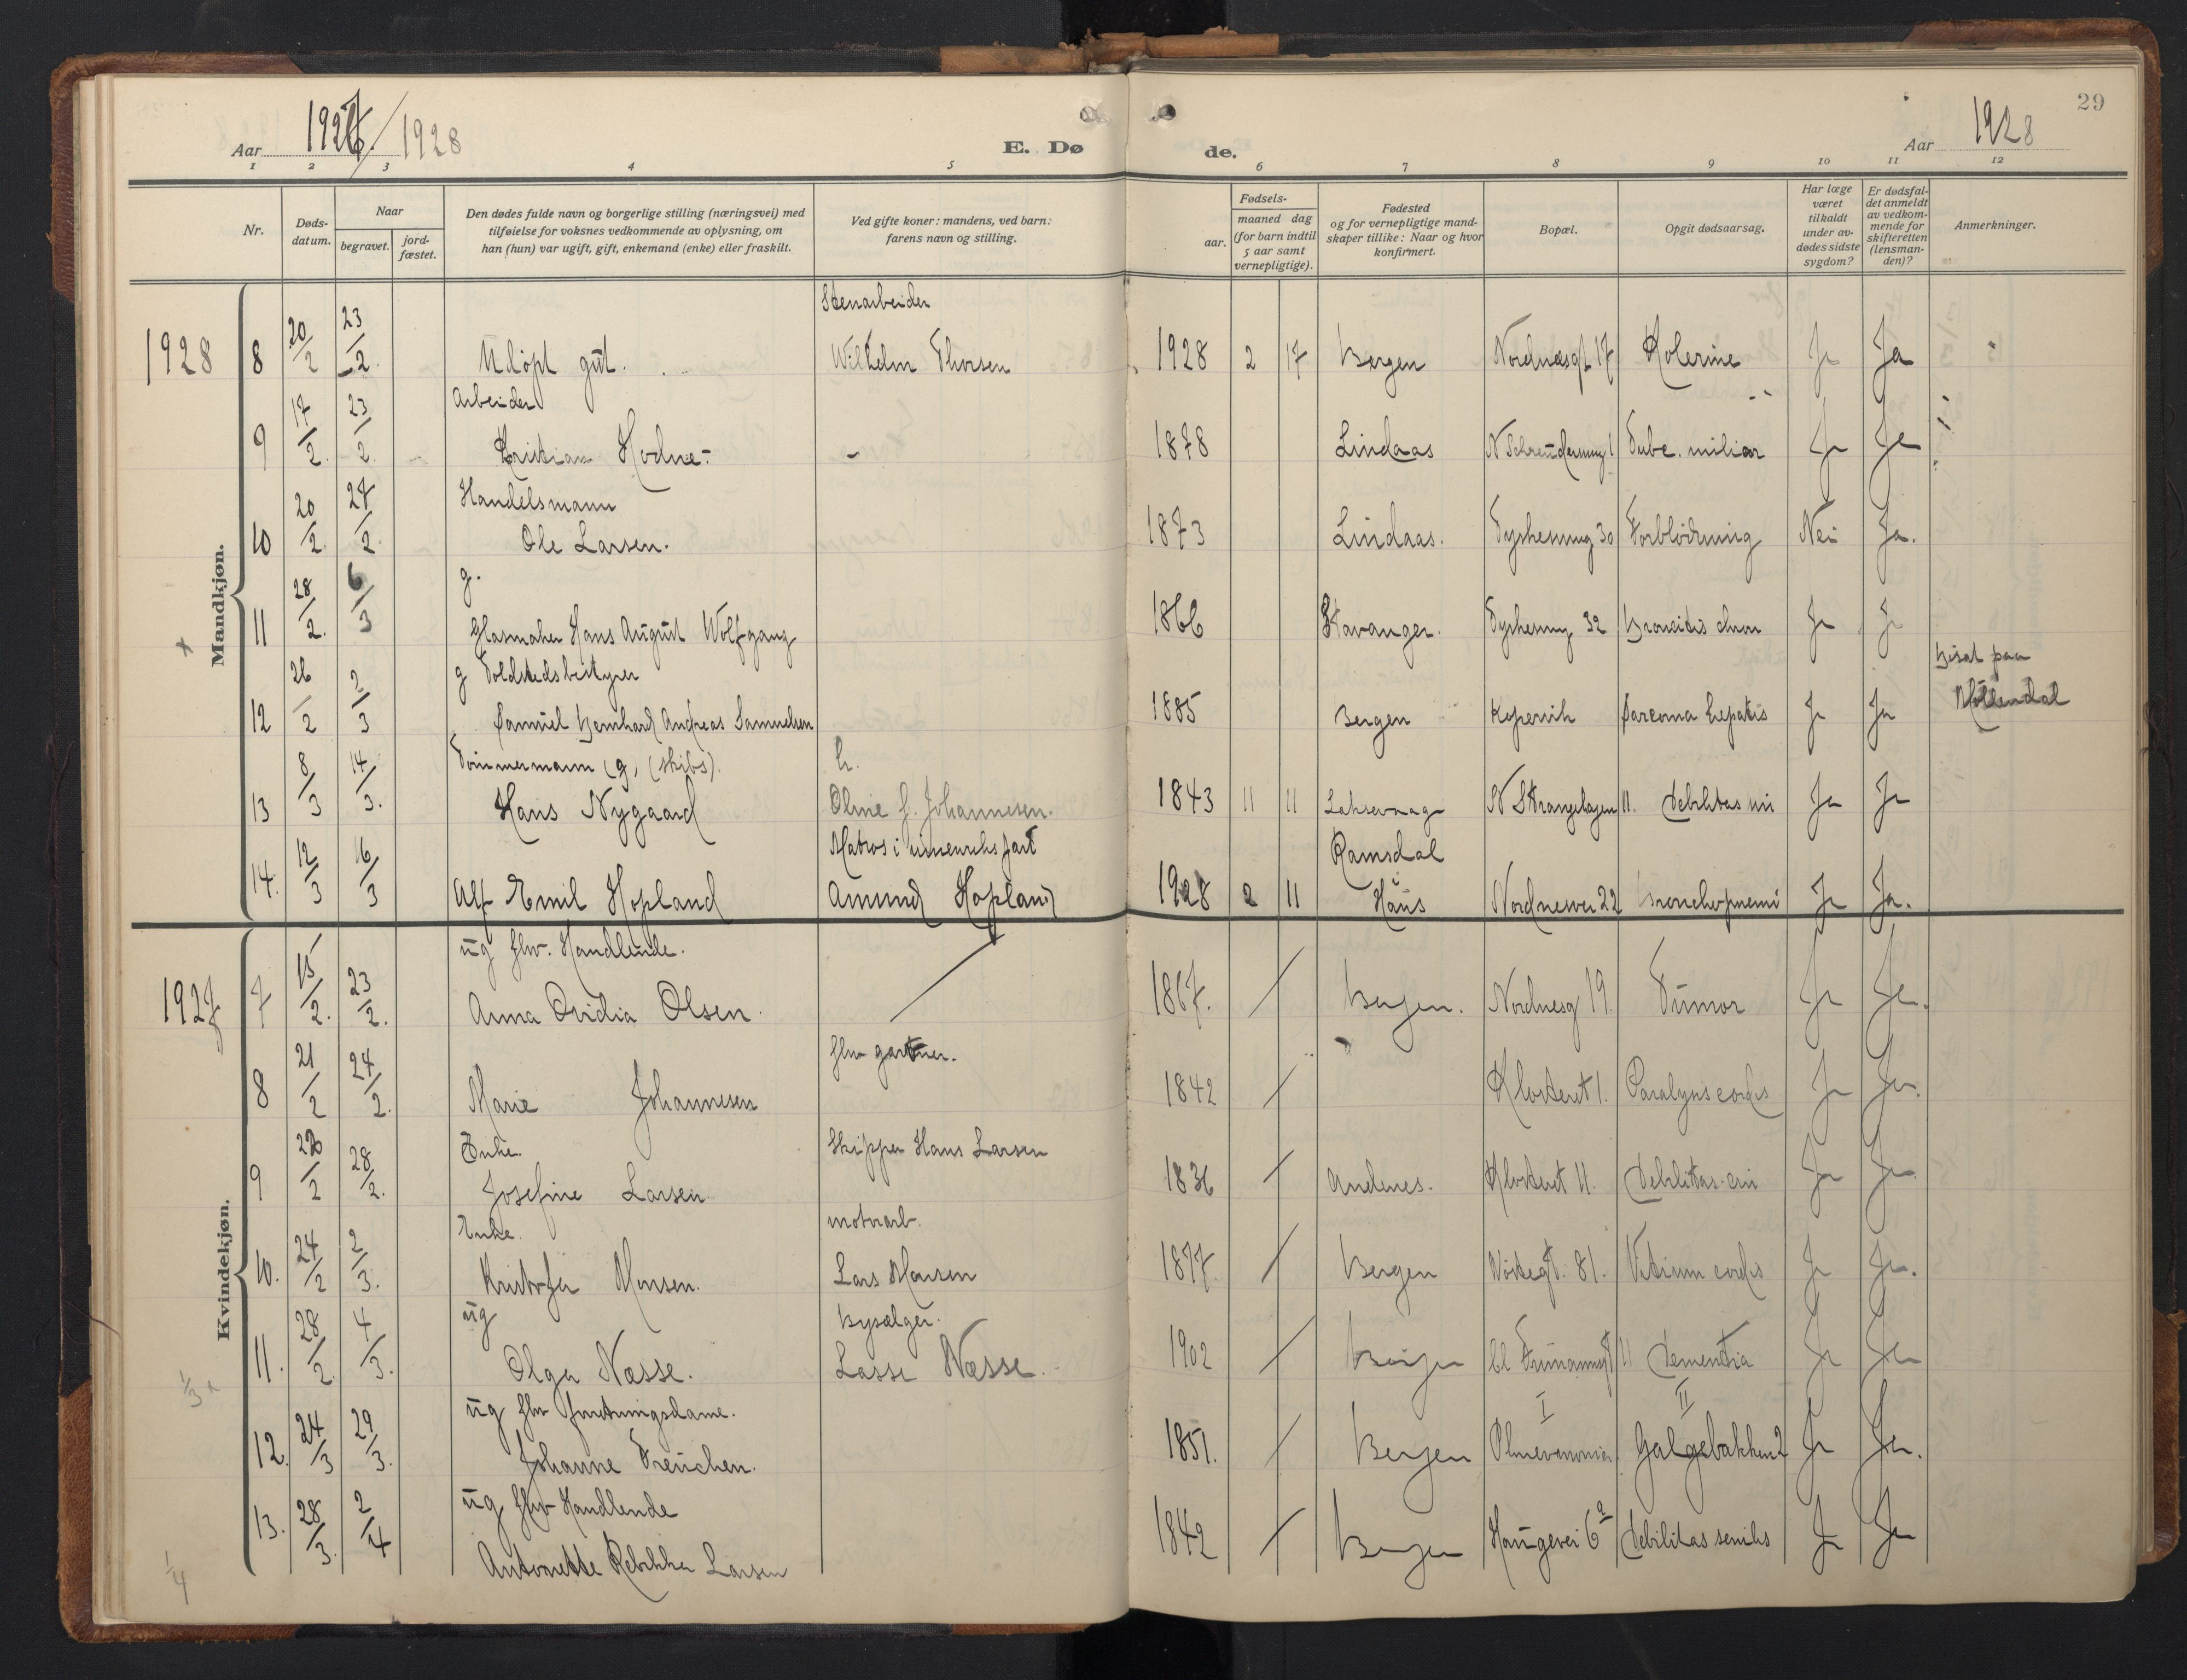 Aar 1927/1928
E. Døde.
Aar 1928
29
1 2 3 4 5 6 7 8 9 10 11 12
Nr.
Døds-
datum.
Naar
begravet.
jord-
fæstet.
Den dødes fulde navn og borgerlige stilling (næringsvei) med
tilføielse for voksnes vedkommende av oplysning, om
han (hun) var ugift, gift, enkemand (enke) eller fraskilt.
Ved gifte koner: mandens, ved barn:
farens navn og stilling.
Fødsels-
aar.
maaned dag
(for barn indtil
5 aar samt
vernepligtige).
Fødested
og for vernepligtige mand-
skaper tillike: Naar og hvor
konfirmert.
Bopæl.
Opgit dødsaarsag.
Har læge
været
tilkaldt
under av-
dødes sidste
sygdom?
Er dødsfal-
det anmeldt
av vedkom-
mende for
skifteretten
(lensman-
den)?
Anmerkninger.
Mandkjøn.
Stenarbeider
1928 8 20/2 23/2 Udöpt gut. Wilhelm Thorsen 1928 2 17 Bergen Nordnæsgt 17 Kolerine Ja Ja
Arbeider
9 17/2 23/2 Kristian Hodne - 1878 Lindaas Tube. miliar Ja Ja
Handelsmann
10 20/2 27/2 Ole Larsen. 1873 Lindaas. 30 Forblödning Nei Ja.
g.
11 28/2 6/3 Glasmaker Hans August Wolfgang 1866 Stavanger. 32 Broncitis chron Ja Ja
g Toldstedsbestyrer
Bisat paa
12 26/2 2/3 Samuel Bernhard Andreas Samuelsen 1885 Bergen Kopervik Sarcoma hepatis Ja Ja Möllendal
Tömmermann (g, (skibs). h.
13 8/3 14/3. Hans Nygaard Oline f. Johannesen. 1843 11 11 Laksevaag N Strangehagen 11. debilitas Ja Ja
Matros i innenriks fart Ramsdal
14. 12/3 16/3 Alf Emil Hopland Amund Hopland 1928 2 11 Haus Nordnesvei 22 Ja Ja.
Kvindekjøn.
ug fhv. Handlende.
1927 7 15/2. 23/2. Anna Ovidia Olsen. 1867. Bergen. Nordnesg 19. Tumor Ja Ja.
fhv gartner.
8 21/2 24/2. Marie Johannesen 1842 Klosteret 1. Paralysis cordis Ja Ja.
Enke. Skipper Hans Larsen
9 2/2 28/2. Josefine Larsen 1836 Andenes. Klosteret 11. debilitas Ja Ja
Enke. motorarb.
10. 24/2 2/3. Monsen. Lars Monsen 1877. Bergen Nöstegt. 81. Vitium cordis Ja Ja.
ug Bysælger.
11. 28/2. 4/3. Olga Næsse. Lasse Næsse 1902 Bergen 11 dementia Ja Ja
1/3
ug fhv forretningsdame. I II
12. 24/3 29/3. Johanne Treuchen. 1851. Bergen Galgebakken 2 Ja Ja.
ug fhv Handlende
13. 28/3. 2/4 Antonette Rebekka Larsen 1842 Bergen Haugevei 6a debilitas senilis Ja Ja
1/4